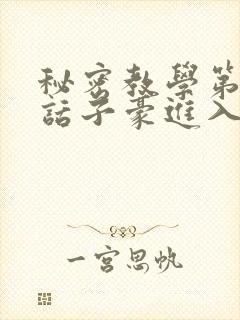 秘密教學第
話子豪進入
一宮思帆